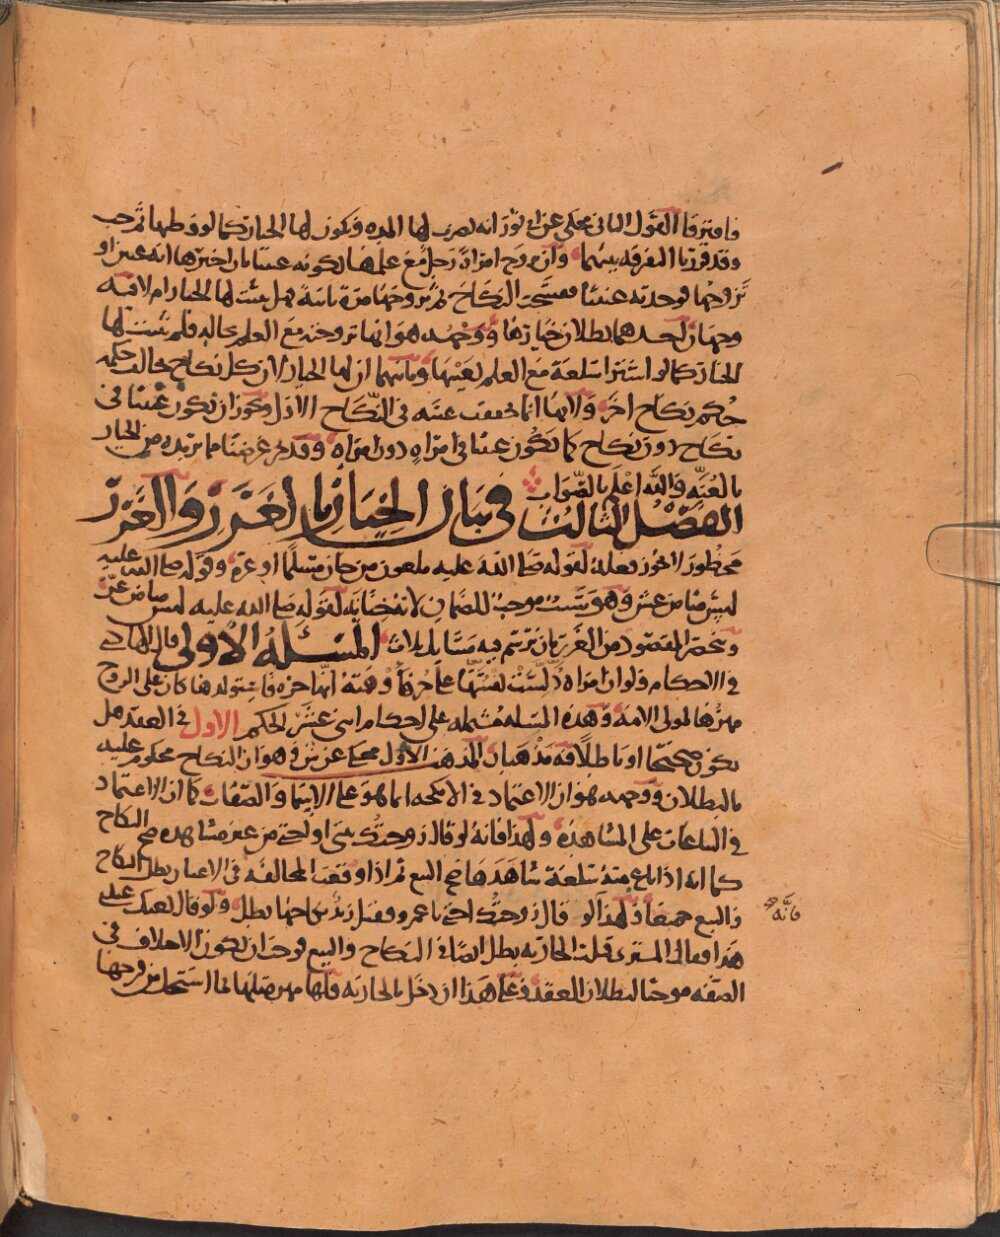 فافترقا القول الثاني محكي عن ابي ثور انه يضرب لها المده ويكون لها الخيار كما لو وطيها ثم جب
وقد قررنا التفرقه بينهما وان تزوج امراة رجل مع علمها بكونه عنينا بان اخبرها انه عنين او
تزوجها فوجدته عنينا ففسخت النكاح ثم تزوجها مرة ثانية فهل يثبت لها الخيار ام لا فيه
وجهان احدهما بطلان خيارها ووجهه هو انها تزوجته مع العلم بحاله فلم يثبت لها
الخيار كما لو اشترا سلعة مع العلم بعيبها وثانيهما ان لها الخيار لان كل نكاح يخالف حكمه
حكم نكاح اخر ولانها انما تحققت عنته في النكاح الاول ويجوز ان يكون عنينا في
نكاح دون نكاح كما يكون عنينا في امراه دون امراه وقد نجز غرضنا مما نريده من الخيار
بالعنه والله اعلم بالصواب
الفصل الثالث في بيان الخيار بالغرر والغرر
محظور لا يجوز فعله لقوله صلى الله عليه ملعون من خان مسلما او غره وقوله صلى الله عليه
ليس منا من غش وهو سبب موجب للضمان لقوله صلى الله عليه ليس منا من غر
وينحصر المقصود من الغرر بان نرسم فيه مسايل ثلاث المسئله الاولى قال الهادي
في الاحكام ولو ان امراه دلست نفسها على حر وهي امة انها حره فاستولدها كان على الزوج
مهرها لمولى الامه وهذه المسله مشتمله على احكام اثنى عشر الحكم الاول في العقد هل
يكون صحيحا او باطلا فيه مذهبان المذهب الاول محكي عن ش وهو ان النكاح محكوم عليه
بالبطلان ووجهه هو ان الاعتماد في الانكحه انما هو على الاسما والصفات كما ان الاعتماد
في البياعات على المشاهده ولهذا فانه لو قال زوجتك بنتي او اختي من غير مشاهده صح النكاح
كما انه اذا باع منه سلعة شاهدها صح البيع ثم اذا وقعت المخالفه في الاعيان بطل النكاح
والبيع جميعا ولهذا لو قال زوجتك اختي يا عمرو فقبل زيد نكاحها بطل ولو قال بعتك عبدي
فانه
هذا فقال المشتري قبلت الجاريه بطل ايضا في النكاح والبيع فوجب ان يكون الاختلاف في
الصفه موجبا لبطلان العقد فعلى هذا ان دخل بالجاريه فلها مهر مثلها لما استحل من فرجها